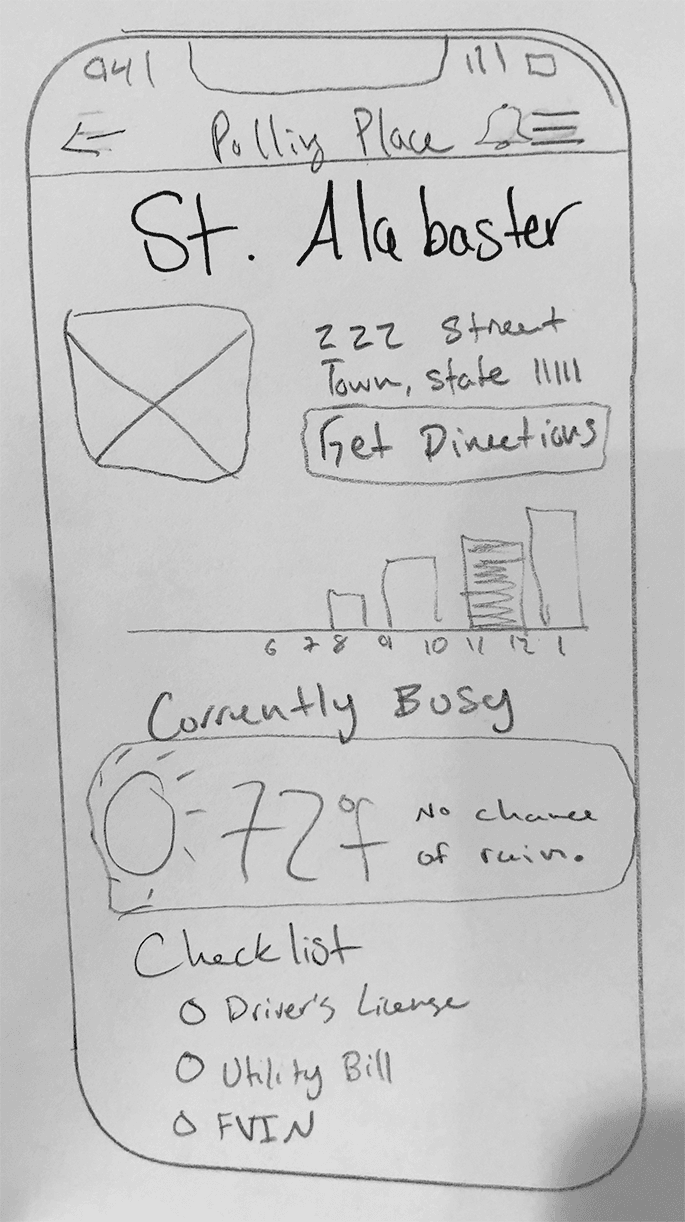 941
Polling Place
St. Alabaster
222 Street
Town, state 11111
Get Directions
6 7 8 9 10 11 12 1
Currently Busy
72°f No chance
of rain.
Checklist
Driver's License
Utility Bill
FVIN